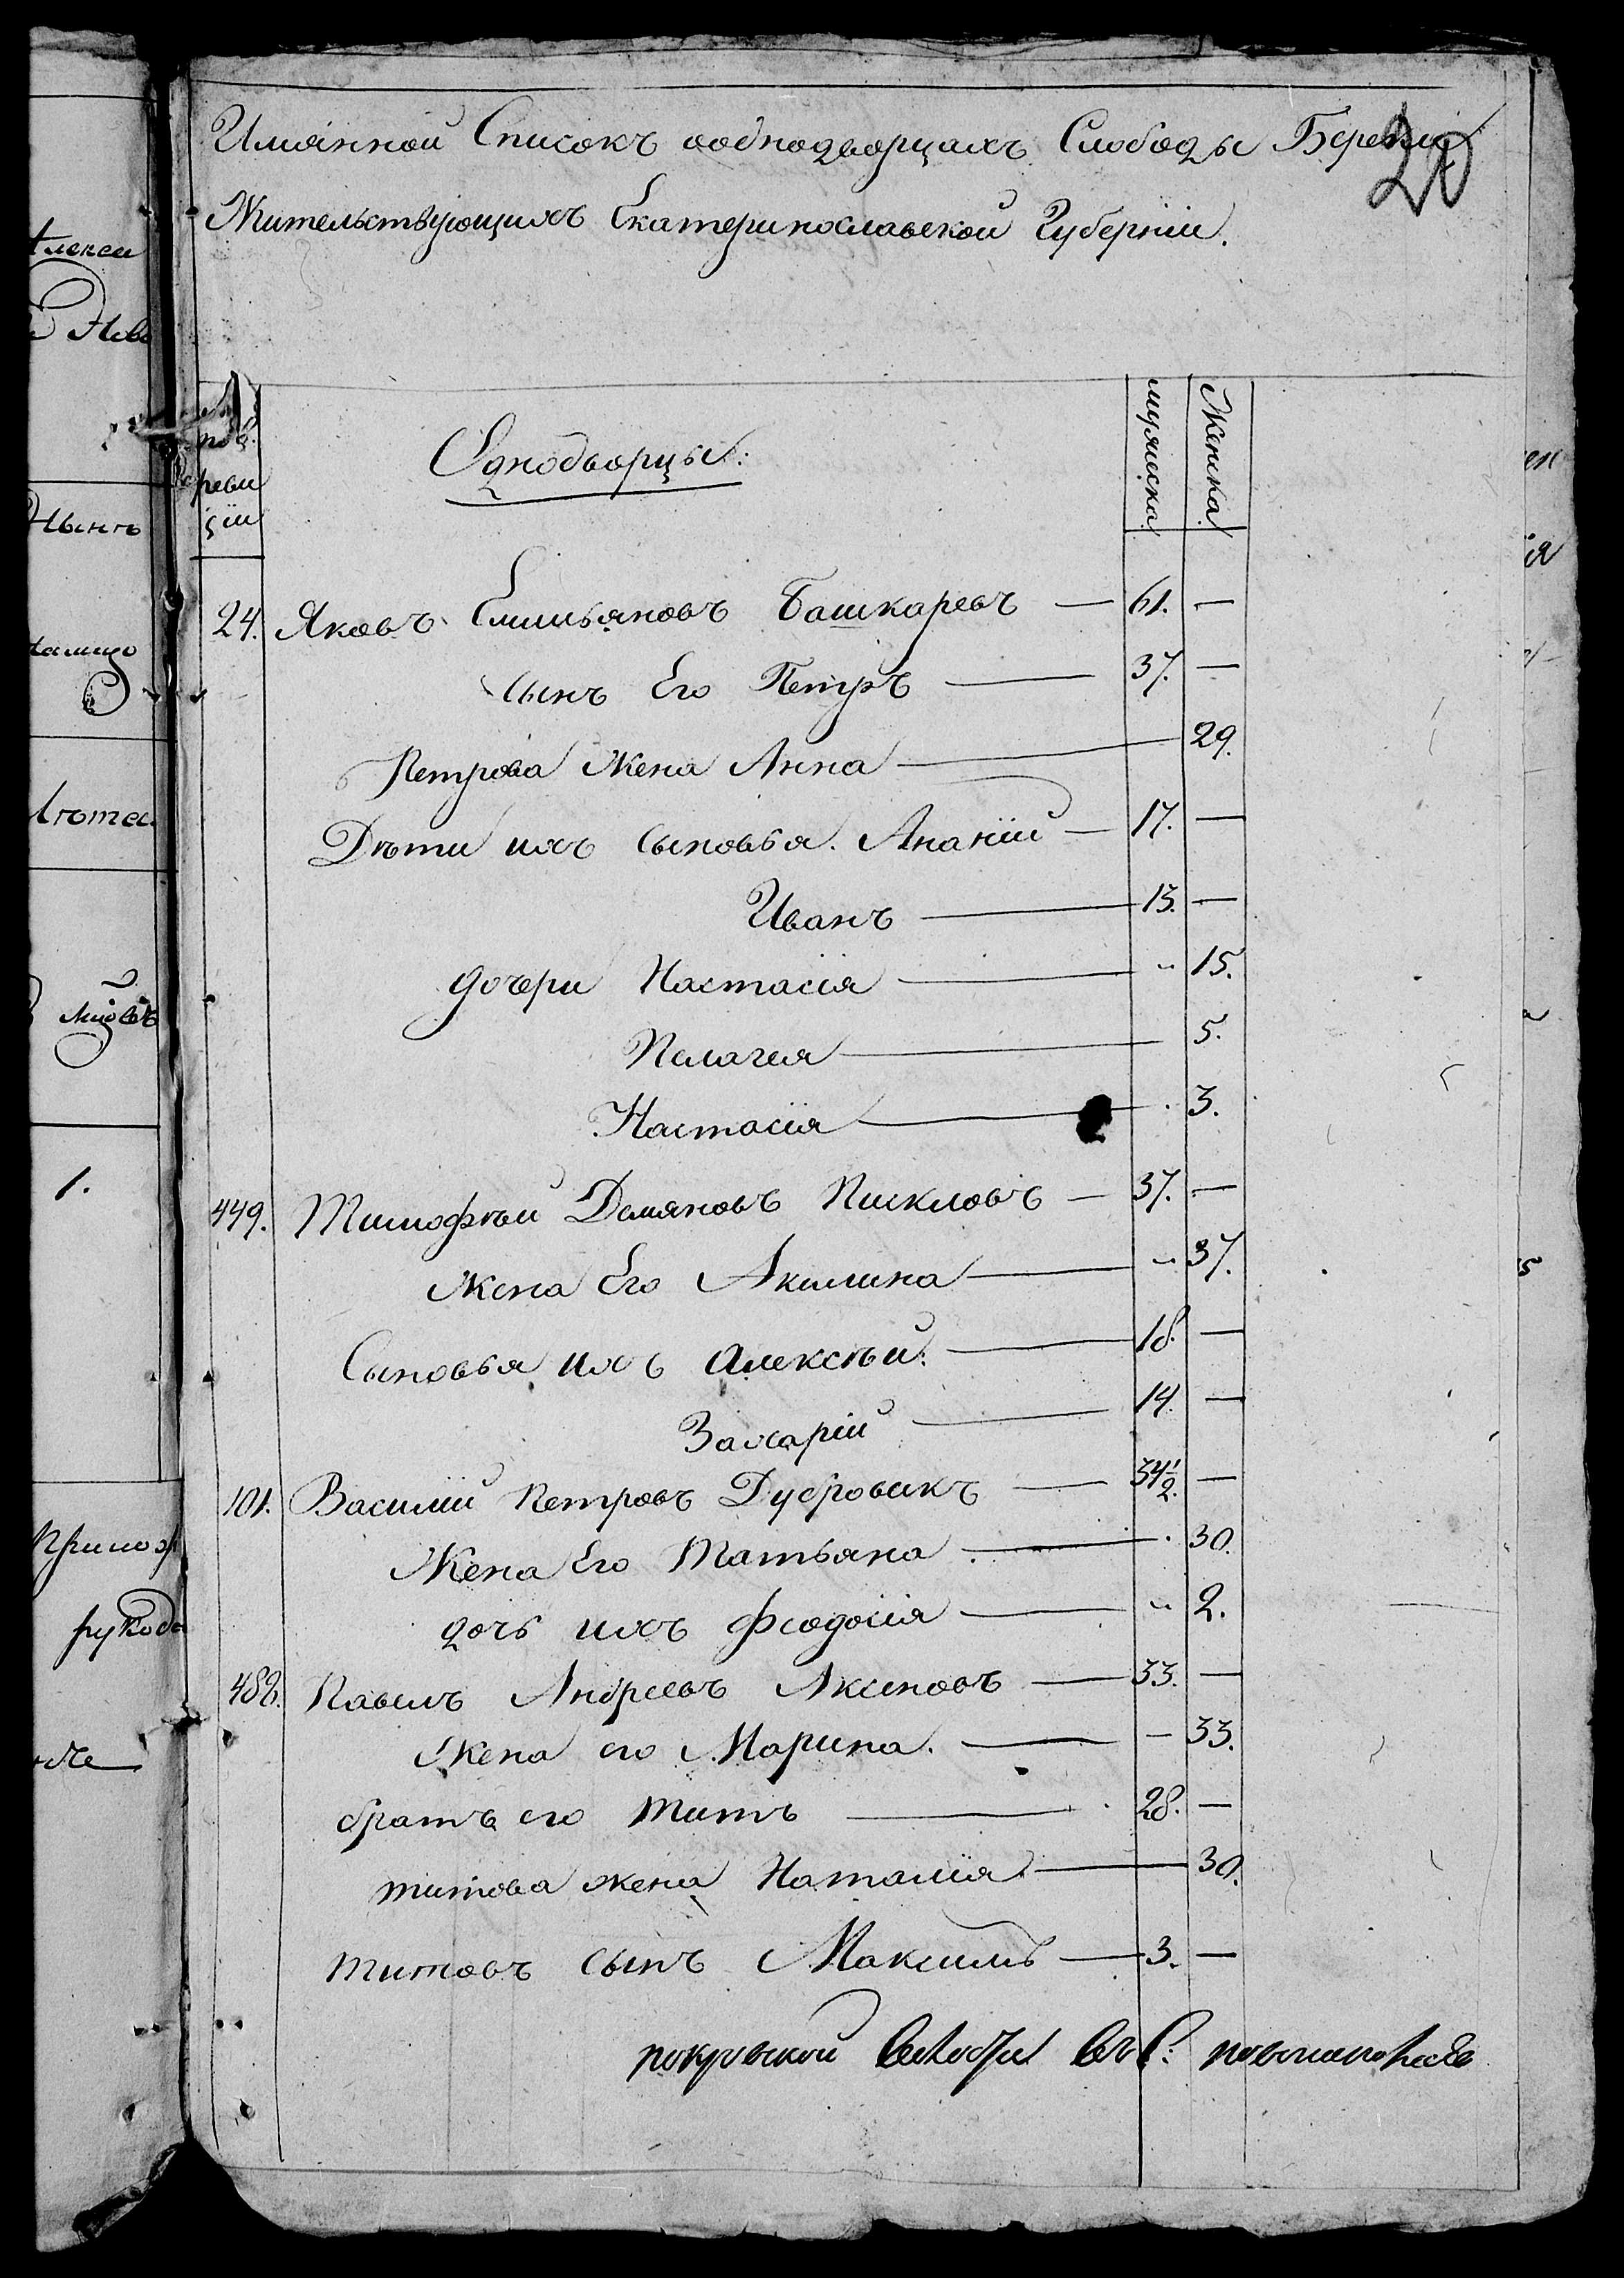 20
Имянной Списокъ ооднодворцахъ Слободы
Жительствующихъ Екатеринославской Губернїи.
по
реви
зїи
Однодворцы:
мужеска
Женска
24. Яковъ Емильяновъ Башкаревъ — 61. —
сынъ Его Петръ — 37. —
Петрова Жена Анна — 29.
Дѣти ихъ сыновья. Ананїй — 17. —
Иванъ — 13. —
дочери Настасїя — 15.
Пелагея — 5.
Настасїя — 3.
449. Тимофѣй Демяновъ Пикловъ — 37. —
жена Его Акилина — 37.
Сыновья ихъ Алексѣй: — 18. —
Захарїй — 14. —
101. Василїй Петровъ — 34 1/2. —
Жена Его Татьяна. — 30.
дочь ихъ Феодосїя — 2.
488. Павелъ Андреевъ Аксеновъ — 33. —
Жена его Марина. — 33.
братъ его Титъ — 28. —
титова жена Наталїя — 30.
титовъ сынъ Максимъ — 3. —
покровской
Алексеи
1.